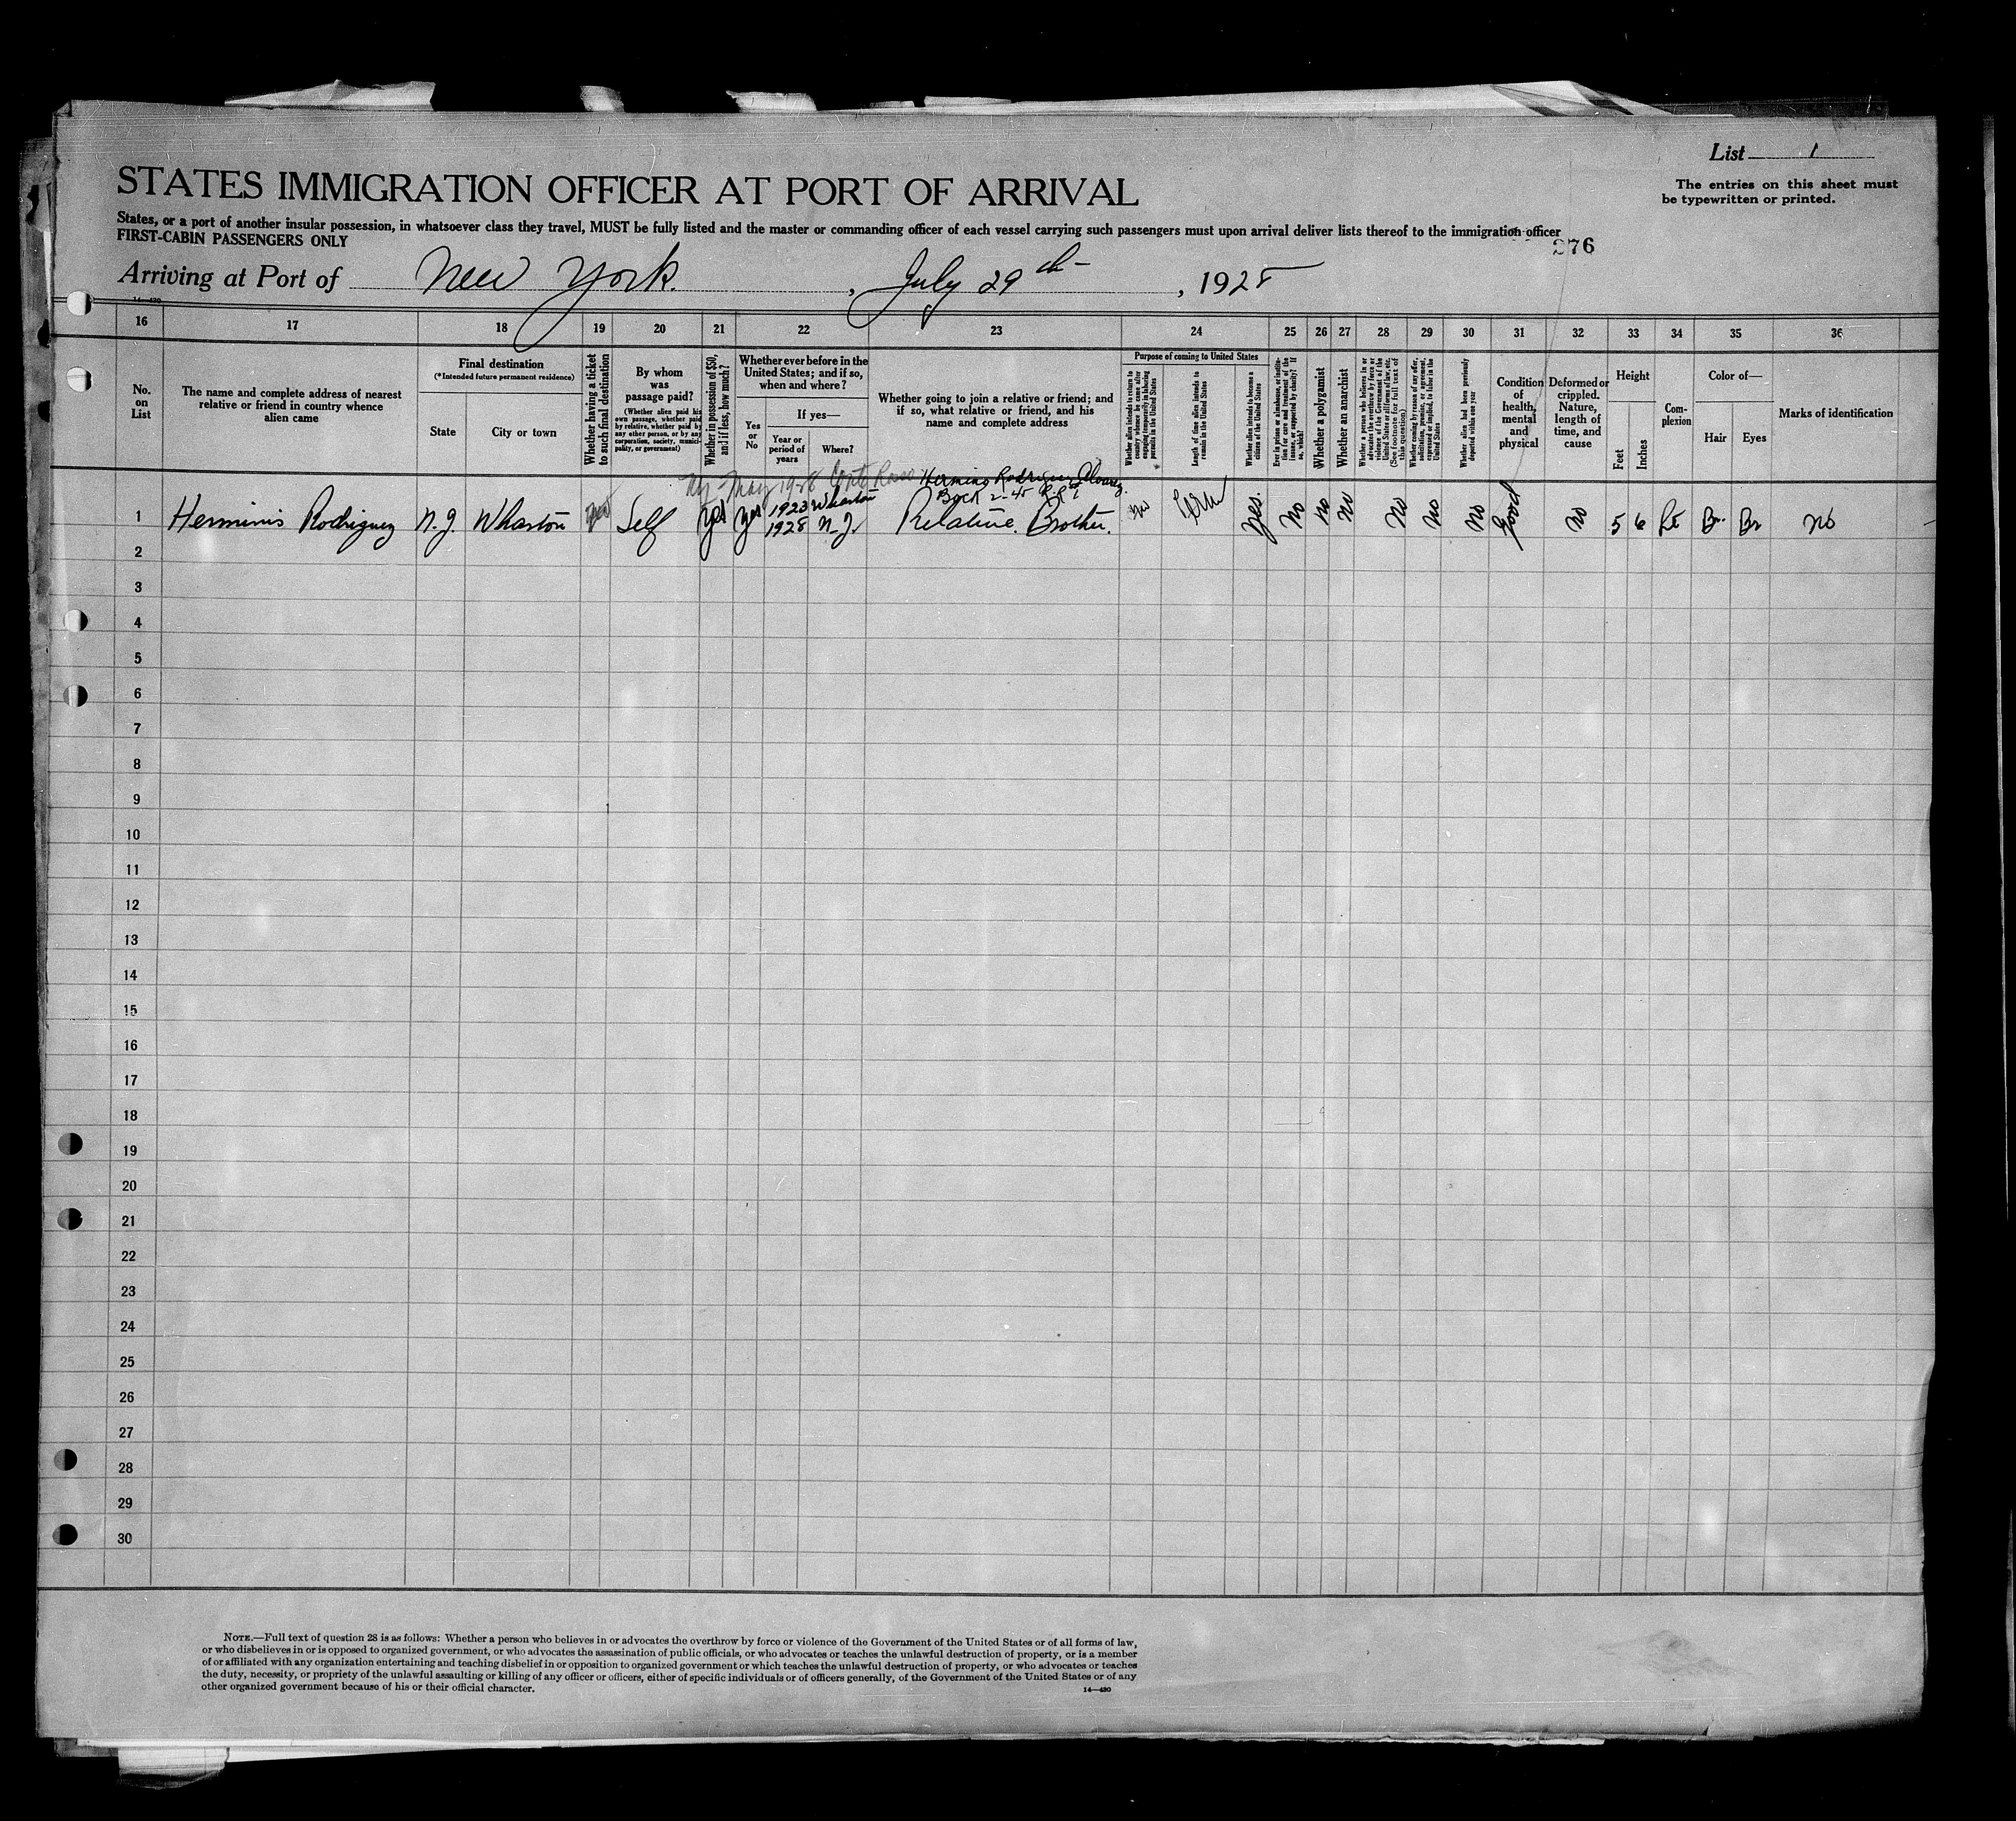 List 1
The entries on this sheet must
be typewritten or printed.
STATES IMMIGRATION OFFICER AT PORT OF ARRIVAL
States, or a port of another insular possession, in whatsoever class they travel, MUST be fully listed and the master or commanding officer of each vessel carrying such passengers must upon arrival deliver lists thereof to the immigration officer
FIRST-CABIN PASSENGERS ONLY
276
Arriving at Port of New York , July 29th , 1928
14—430
16 17 18 19 20 21 22 23 24 25 26 27 28 29 30 31 32 33 34 35 36
No. on List
The name and complete address of nearest relative or friend in country whence alien came
Final destination
(*Intended future permanent residence)
State
City or town
Whether having a ticket to such final destination
By whom was passage paid?
(Whether alien paid his own passage, whether paid by relative, whether paid by any other person, or by any corporation, society, municipality, or government)
Whether in possession of $50, and if less, how much?
Whether ever before in the United States; and if so, when and where?
Yes or No
If yes—
Year or period of years
Where?
Whether going to join a relative or friend; and if so, what relative or friend, and his name and complete address
Purpose of coming to United States
Whether alien intends to return to country whence he came after engaging temporarily in laboring pursuits in the United States
Length of time alien intends to remain in the United States
Whether alien intends to become a citizen of the United States
Ever in prison or almshouse, or institution for care and treatment of the insane, or supported by charity? If so, which?
Whether a polygamist
Whether an anarchist
Whether a person who believes in or advocates the overthrow by force or violence of the Government of the United States or all forms of law, etc. (See footnote for full text of this question)
Whether coming by reason of any offer, solicitation, promise, or agreement, expressed or implied, to labor in the United States
Whether alien had been previously deported within one year
Condition of health, mental and physical
Deformed or crippled. Nature, length of time, and cause
Height
Feet
Inches
Complexion
Color of—
Hair
Eyes
Marks of identification
Ny May 1928 Herminio Rodriguez Alvarez
Box 2-45
1923 Wharton
1 Herminio Rodriguez N.J. Wharton Self yes yes 1928 N.J. Relative. Brother. no yes. no no no no no no Good no 5 6 Br. Br no
2
3
4
5
6
7
8
9
10
11
12
13
14
15
16
17
18
19
20
21
22
23
24
25
26
27
28
29
30
NOTE.—Full text of question 28 is as follows: Whether a person who believes in or advocates the overthrow by force or violence of the Government of the United States or of all forms of law,
or who disbelieves in or is opposed to organized government, or who advocates the assassination of public officials, or who advocates or teaches the unlawful destruction of property, or is a member
of or affiliated with any organization entertaining and teaching disbelief in or opposition to organized government or which teaches the unlawful destruction of property, or who advocates or teaches
the duty, necessity, or propriety of the unlawful assaulting or killing of any officer or officers, either of specific individuals or of officers generally, of the Government of the United States or of any
other organized government because of his or their official character.
14—430